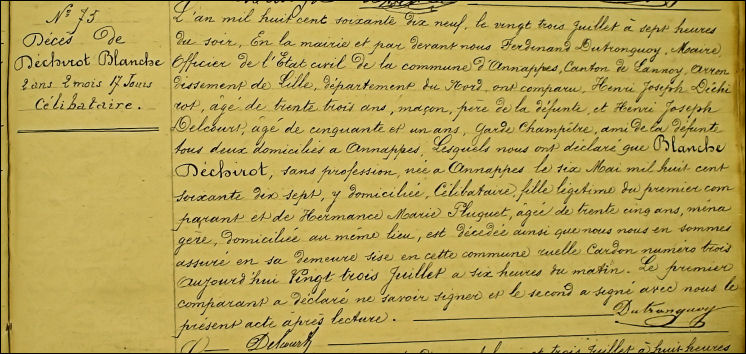 Nº 75
Décès de
Déchirot Blanche
2 ans 2 mois 17 Jours
Célibataire.
L'an mil huit cent soixante dix neuf, le vingt trois Juillet à sept heures
du soir, En la mairie et par devant nous Ferdinand Dutronquoy, Maire
Officier de l'Etat civil de la commune d'Annappes, Canton de Lannoy, arron
dissement de Lille, département du Nord, ont comparu, Henri Joseph Déchi
rot, âgé de trente trois ans, maçon, père de la défunte, et Henri Joseph
Delcourt, âgé de cinquante et un ans, Garde Champêtre, ami de la défunte
tous deux domiciliés à Annappes, Lesquels nous ont déclaré que Blanche
Déchirot, sans profession, née à Annappes le six Mai mil huit cent
soixante dix sept, y domiciliée, Célibataire, fille légitime du premier com
parant et de Hermance Marie Pluquet, âgée de trente cinq ans, ména
gère, domiciliée au même lieu, est décédée ainsi que nous nous en sommes
assuré en sa demeure sise en cette commune ruelle Cardon numéro trois
aujourd'hui Vingt trois Juillet à six heures du matin. Le premier
comparant a déclaré ne savoir signer et le second a signé avec nous le
présent acte après lecture.
Dutronquoy
Delcourt
trois Juillet à huit heures